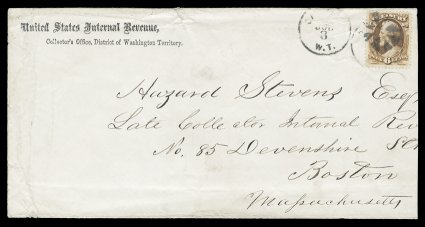 United States Internal Revenue,
Collector's Office, District of Washington Territory.
3
W.T.
6
Hazard Stevens Esq
Late Collector Internal Rev
No. 85 Devenshire St
Boston
Massachusetts